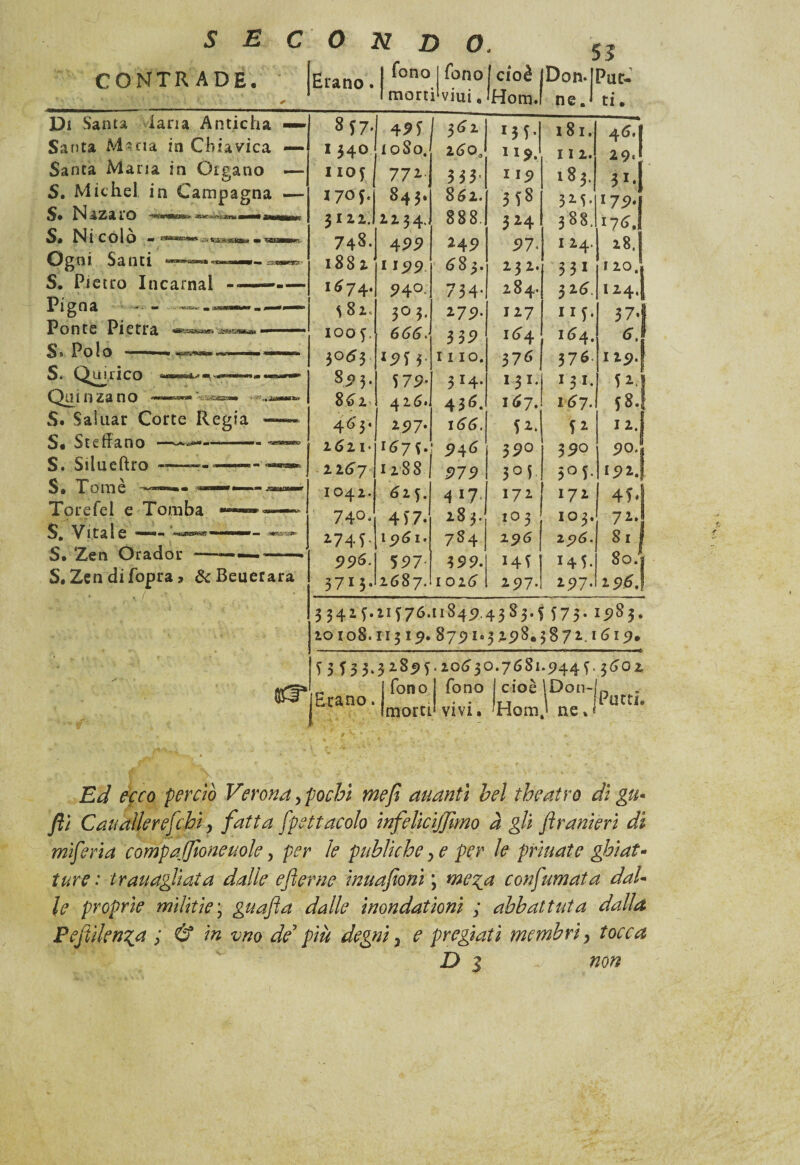 SECONDO. 53
CONTRADE. Erano. ſono morti ſono viui. cioè Hom. Don-ne. Put-ti.
Di Santa Maria Anticha — 857. 495 362 135. 181. 46.
Santa Maria in Chiavica — 1340 1080. 260. 119. 112. 29.
Santa Maria in Organo — 1105 772. 333. 119 183. 31.
S. Michel in Campagna — 1705. 843. 862. 358 325. 179.
S. Nazaro — 3122. 2234. 888. 324 388. 176.
S. Nicolò — 748. 499 249 97. 124. 28.
Ogni Santi — 1882 1199 683. 232. 331 120.
S. Pietro Incarnal — 1674. 940. 734. 284. 326. 124.
Pigna — 582. 303. 279. 127 115. 37.
Ponte Pietra — 1005. 666. 339 164 164. 6.
S. Polo — 3063 1953. 1110. 376 376. 129.
S. Quirico — 893. 579. 314. 131. 131. 52.
Quinzano — 862 426. 436. 167. 167. 58.
S. Saluar Corte Regia — 463. 297. 166. 52. 52 12.
S. Steffano — 2621. 1675. 946 390 390 90.
S. Silueſtro — 2267 1288 979 305 305. 192.
S. Tomè — 1042. 625. 417. 172 172 45.
Torefel e Tomba — 740. 457. 283. 103 103. 72.
S. Vitale — 2745. 1961. 784 296 296. 81
S. Zen Orador — 996. 597. 399. 145 145. 80.
S. Zen di ſopra, & Beuerara 3713. 2687. 1026 297. 297. 296.
33425. 21576. 11849. 4383. 5573. 1983.
20108. 11319. 8791. 3298. 3872. 1619.
53533. 32895. 20630. 7681. 9445. 3602
Erano. ſono morti ſono vivi. cioè Hom. Don-ne. Putti.
Ed ecco perciò Verona, pochi meſi auanti bel theatro di gu-
ſti Cauallereſchi, fatta ſpettacolo infeliciſſimo à gli ſtranieri di
miſeria compaſſioneuole, per le publiche, e per le priuate ghiat-
ture: trauagliata dalle eſterne inuaſioni; meza conſumata dal-
le proprie militie; guaſta dalle inondationi ; abbattuta dalla
Peſtilenza ; & in vno de' più degni, e pregiati membri, tocca
D 3 non